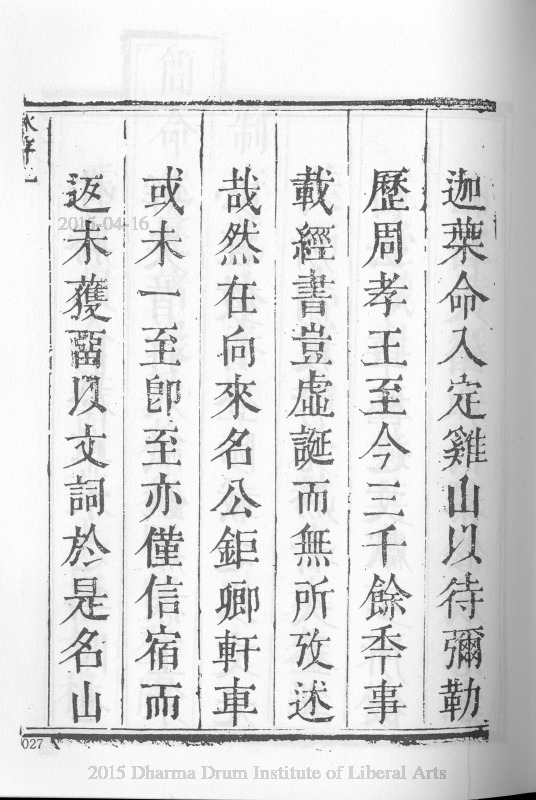 迦葉命入定雞山以待彌勒
歷周孝王至今三千餘秊事
載經書豈虛誕而無所攷述
哉然在向來名公鉅卿軒車
或未一至卽至亦僅信宿而
返未獲畱以文詞於是名山
027
2015-04-16
2015 Dharma Drum Institute of Liberal Arts